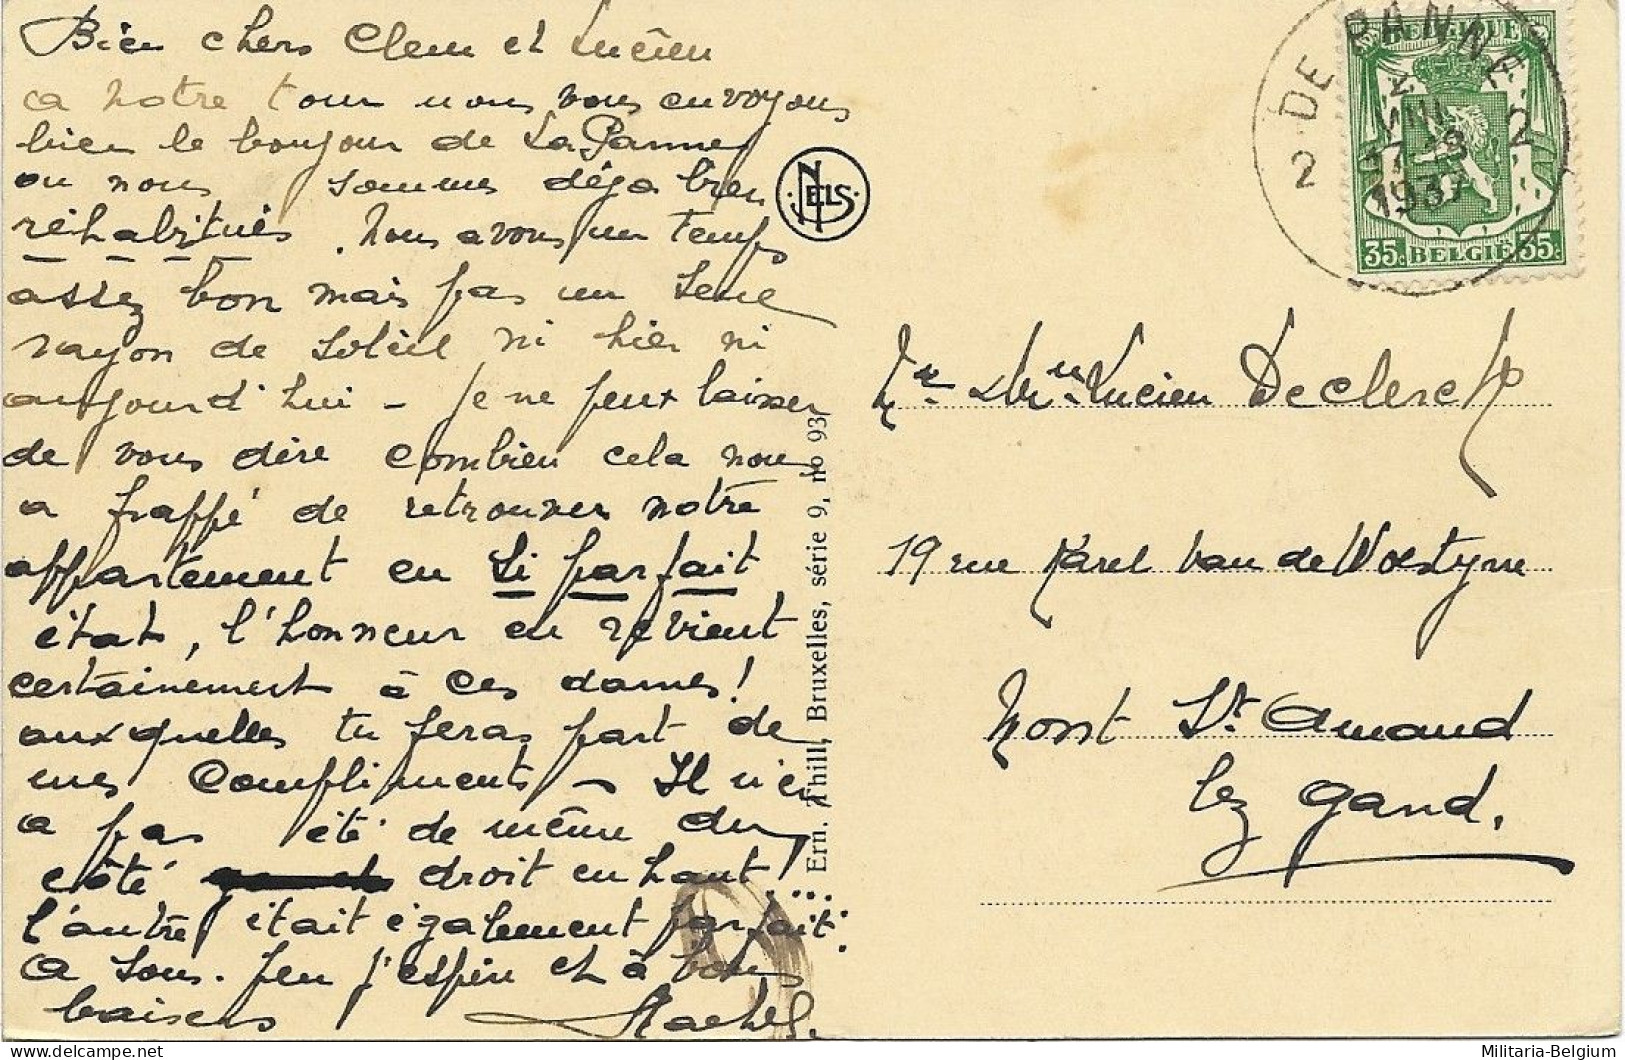 Bien chers Clem et Lucien
a notre tour nous vous envoyons
bien le bonjour de La Panne
ou nous sommes déja bien
réhabitués. Nous avons un temps
assez bon mais pas un seul
rayon de soleil ni hier ni
aujourd'hui - Je ne peux laisser
de vous dire combien cela nous
a frappé de retrouver notre
appartement en si parfait
état, l'honneur en revient
certainement à ces dames!
auxquelles tu feras part de
mes compliments - Il n'en
a pas été de même du
côté droit en haut!....
l'autre était également parfait.
A sous. peu j'espère et à bons
baisers Rachel.
NELS
Ern. Thill, Bruxelles, série 9, no 93
DE PANNE
2 2
VIII
17-18
1937
BELGIQUE
35c BELGIE 35c
Mr & Mme Lucien Declerck
19 rue Karel van de Woestyne
Mont St Amand
lez Gand.
Militaria-Belgium